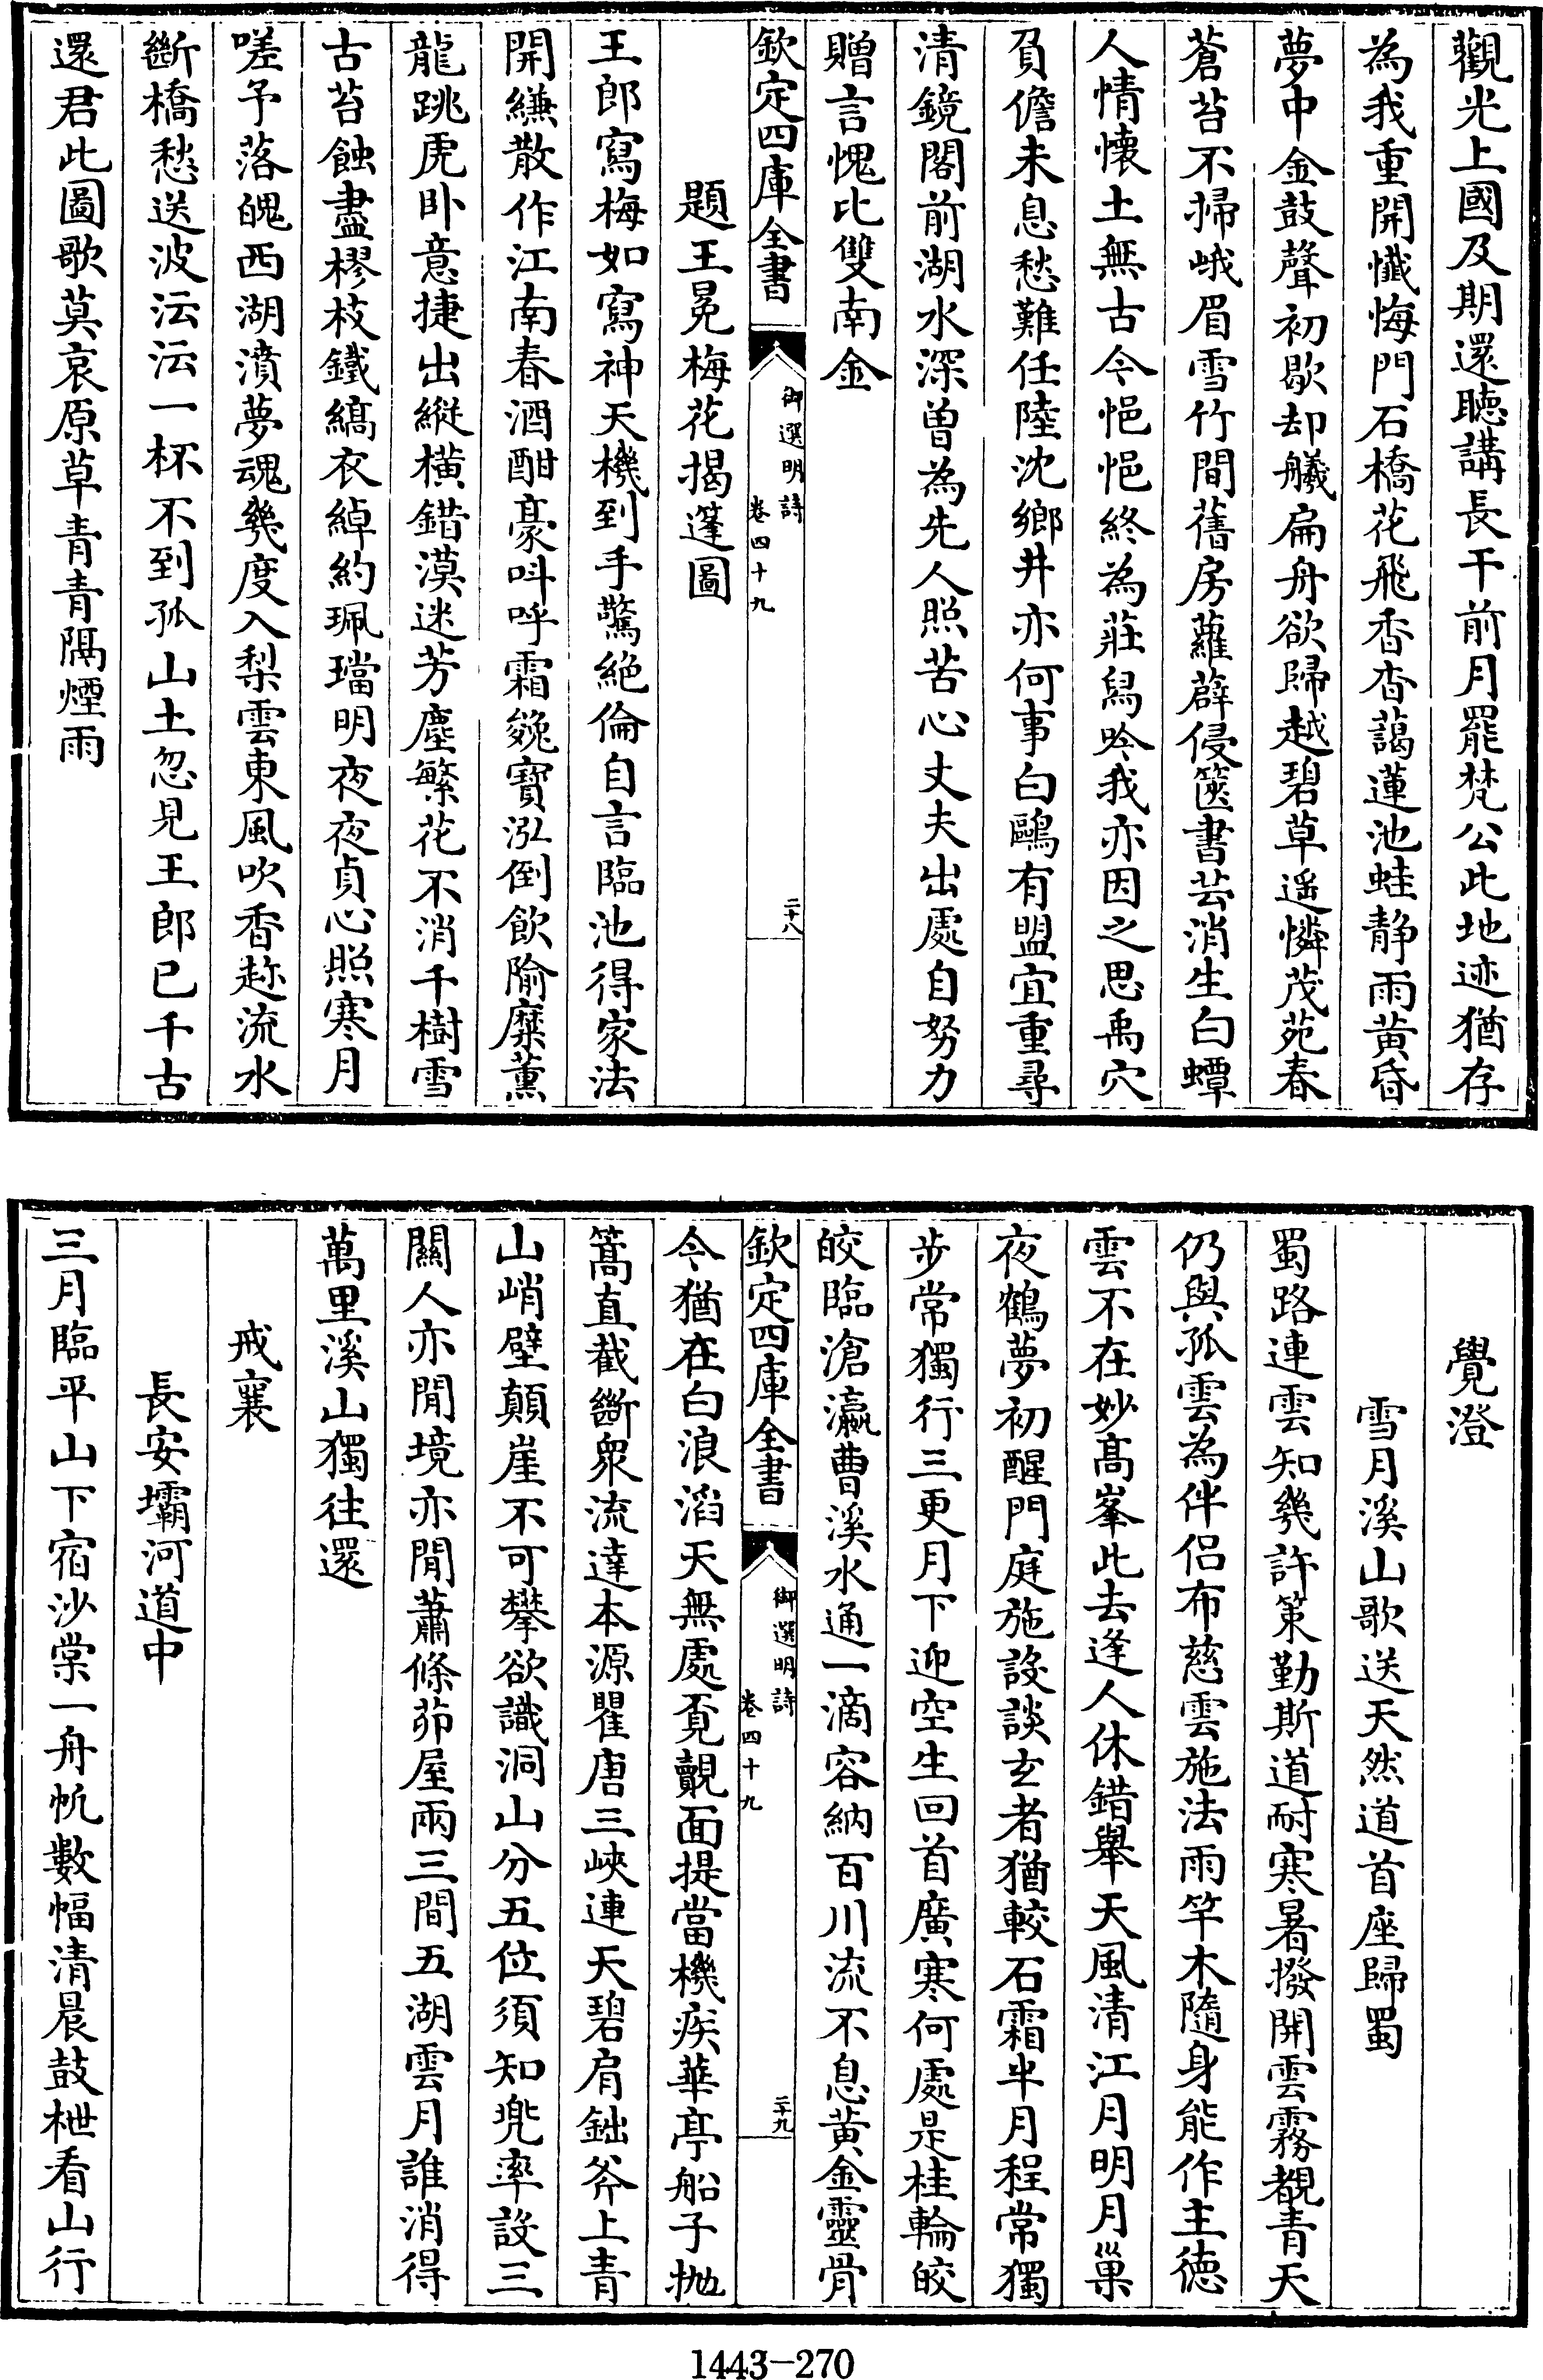 觀光上國及期還聽講長干前月罷梵公此地迹猶存
為我重開懺悔門石橋花飛香杳藹蓮池蛙静雨黄昏
夢中金鼓聲初歇却艤扁舟欲歸越碧草遥憐茂苑春
蒼苔不掃峨眉雪竹間舊房蘿薜侵篋書芸消生白蟫
人情懷土無古今悒悒終為莊舄吟我亦因之思禹穴
負儋未息愁難任陸沈鄉井亦何事白鷗有盟宜重尋
清鏡閣前湖水深曽為先人照苦心丈夫出處自努力
贈言愧比雙南金
欽定四庫全書
御選明詩
卷四十九
二十八
題王冕梅花揭篷圖
王郎寫梅如寫神天機到手驚絶倫自言臨池得家法
開縑散作江南春酒酣豪呌呼霜㕙寶泓倒飲隃麋薰
龍跳虎卧意捷出縱横錯漠迷芳塵繁花不消千樹雪
古苔蝕盡樛枝鐵縞衣綽約珮璫明夜夜貞心照寒月
嗟予落魄西湖濆夢魂幾度入梨雲東風吹香趂流水
斷橋愁送波沄沄一杯不到孤山土忽見王郎已千古
還君此圖歌莫哀原草青青隔煙雨
覺澄
雪月溪山歌送天然道首座歸蜀
蜀路連雲知幾許策勤斯道耐寒暑撥開雲霧覩青天
仍與孤雲為伴侣布慈雲施法雨竿木隨身能作主德
雲不在妙髙峯此去逢人休錯舉天風清江月明月巢
夜鶴夢初醒門庭施設談玄者猶較石霜半月程常獨
步常獨行三更月下迎空生回首廣寒何處是桂輪皎
皎臨滄瀛曹溪水通一滴容納百川流不息黄金靈骨
欽定四庫全書
御選明詩
卷四十九
二十九
今猶在白浪滔天無處覔覿面提當機疾華亭船子抛
篙直截斷衆流達本源瞿唐三峽連天碧肩鈯斧上青
山峭壁顛崖不可攀欲識洞山分五位須知兠率設三
關人亦閒境亦閒蕭條茆屋兩三間五湖雲月誰消得
萬里溪山獨往還
戒襄
長安壩河道中
三月臨平山下宿沙棠一舟帆數幅清晨鼓枻看山行
1443-270